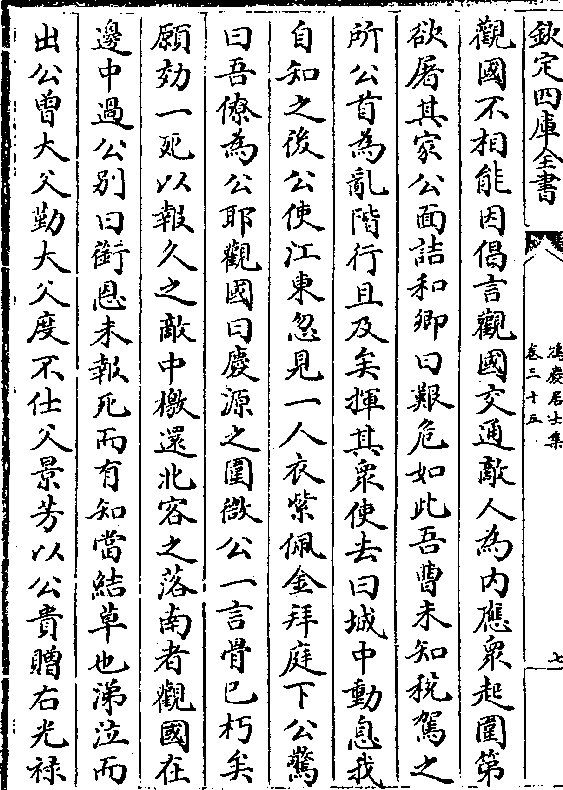 欽定四庫全書
鴻慶居士集
卷三十五
七
觀國不相能因倡言觀國交通敵人為内應衆起圍第
欲屠其家公面詰和卿曰艱危如此吾曹未知稅駕之
所公首為亂階行且及矣揮其衆使去曰城中動息我
自知之後公使江東忽見一人衣紫佩金拜庭下公驚
曰吾僚為公耶觀國曰慶源之圍微公一言骨已朽矣
願効一死以報久之敵中檄還北客之落南者觀國在
邊中過公别曰銜恩未報死而有知當結草也涕泣而
出公曾大父勤大父度不仕父景芳以公貴贈右光禄